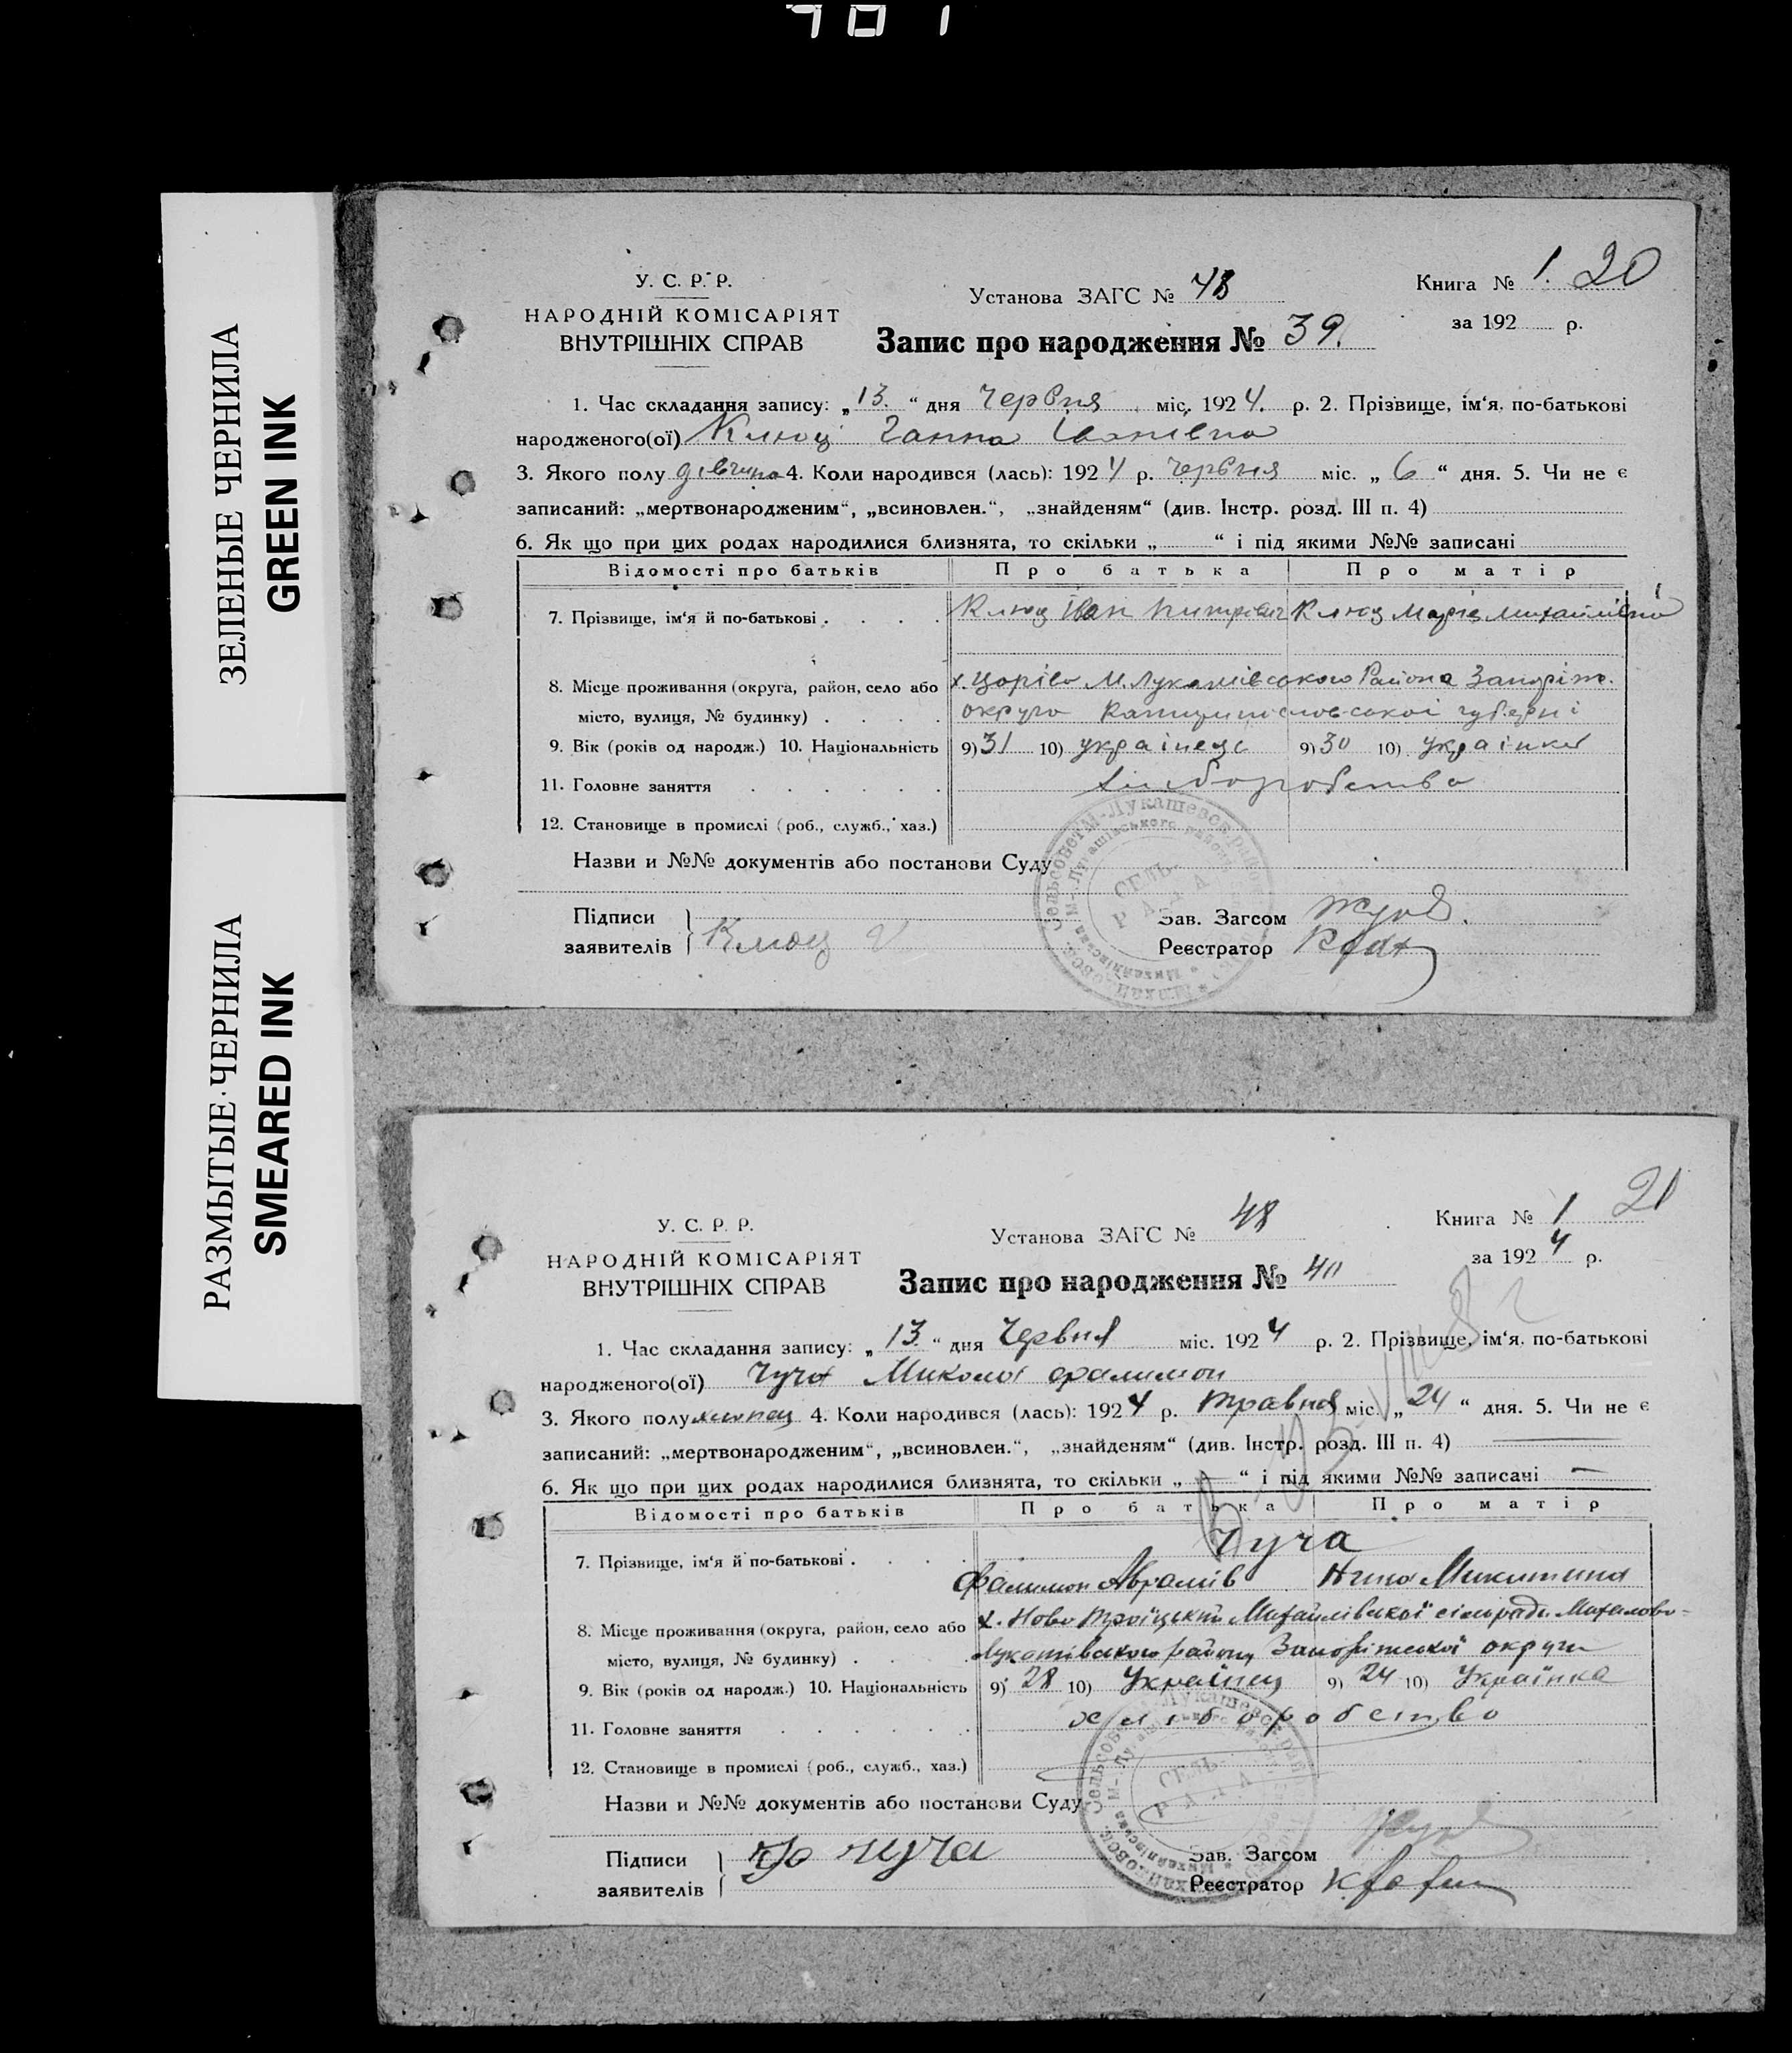 ЗЕЛЕНЫЕ ЧЕРНИЛА
GREEN INK
РАЗМЫТЫЕ ЧЕРНИЛА
SMEARED INK
У. С. Р. Р.
НАРОДНІЙ КОМІСАРІЯТ
ВНУТРІШНІХ СПРАВ
Установа ЗАГС № 48
Книга № 1. 20
за 192 р.
Запис про народження № 39.
1. Час складання запису: „13.“ дня Червня міс. 1924. р. 2. Прізвище, ім‘я, по-батькові
народженого(ої) Клюц Ганна Іванівна
3. Якого полу дівчина 4. Коли народився (лась): 1924 р. Червня міс. „6“ дня. 5. Чи не є
записаний: „мертвонародженим“, „всиновлен.“, „знайденям“ (див. Інстр. розд. III п. 4)
6. Як що при цих родах народилися близнята, то скільки „ “ і під якими №№ записані
Відомості про батьків Про батька Про матір
7. Прізвище, ім‘я й по-батькові . . . . Клюц Іван Клюц Марія Михайлівна
8. Місце проживання (округа, район, село або х. М. Лукашівського Района Запоріж.
місто, вулиця, № будинку) . . . . округа губерні
9. Вік (років од народж.) 10. Національність 9) 31 10) українець 9) 30 10) українка
11. Головне заняття . . . . . .
12. Становище в промислі (роб., служб., хаз.)
Назви и №№ документів або постанови Суду
Підписи
заявителів Клюц
Зав. Загсом
Реєстратор
СЕЛЬ-
РАДА
У. С. Р. Р.
НАРОДНІЙ КОМІСАРІЯТ
ВНУТРІШНІХ СПРАВ
Установа ЗАГС № 48
Книга № 1 21
за 1924 р.
Запис про народження № 40
1. Час складання запису: „13.“ дня Червня міс. 1924 р. 2. Прізвище, ім‘я, по-батькові
народженого(ої) Чуча Микола Фалимон
3. Якого полу хлопец 4. Коли народився (лась): 1924 р. Травня міс. „24“ дня. 5. Чи не є
записаний: „мертвонародженим“, „всиновлен.“, „знайденям“ (див. Інстр. розд. III п. 4) —
6. Як що при цих родах народилися близнята, то скільки „—“ і під якими №№ записані —
Відомості про батьків Про батька Про матір
Чуча
7. Прізвище, ім‘я й по-батькові . . . . Фалимон Абрамів Микитина
8. Місце проживання (округа, район, село або х. Ново Троїцький Михайлівської сільради Михайлово-
місто, вулиця, № будинку) . . . . Лукашівського району Запоріжської округи
9. Вік (років од народж.) 10. Національність 9) 28 10) Українец 9) 24 10) Українка
11. Головне заняття . . . . . . хліборобство
12. Становище в промислі (роб., служб., хаз.)
Назви и №№ документів або постанови Суду
Підписи
заявителів чуча
Зав. Загсом
Реєстратор
СЕЛЬ-
РАДА